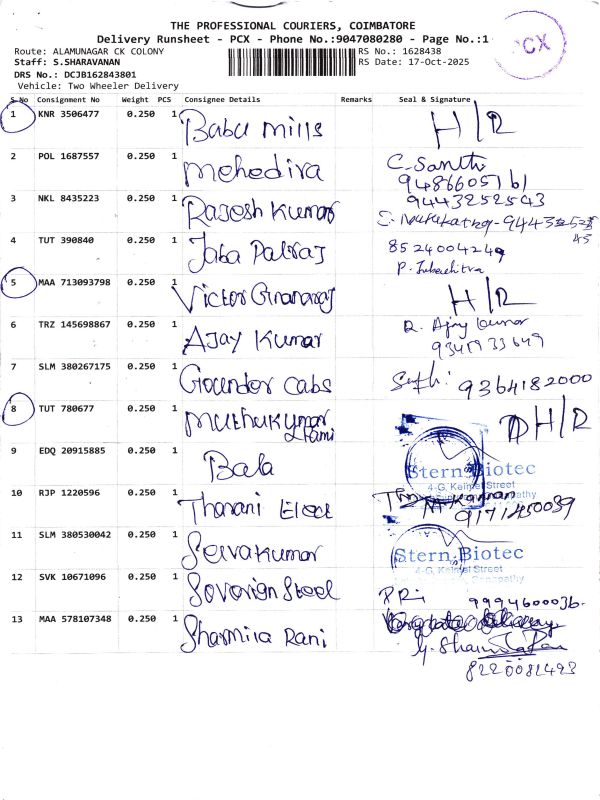 THE PROFESSIONAL COURIERS, COIMBATORE
Delivery Runsheet - PCX - Phone No.:9047080280 - Page No.:1
PCX
Route: ALAMUNAGAR CK COLONY RS No.: 1628438
Staff: S.SHARAVANAN RS Date: 17-Oct-2025
DRS No.: DCJB162843801
Vehicle: Two Wheeler Delivery
S No Consignment No Weight PCS Consignee Details Remarks Seal & Signature
1 KNR 3506477 0.250 1 Babu mills H/R
2 POL 1687557 0.250 1 Mehedira C. Santhi
9486605161
9443252543
3 NKL 8435223 0.250 1 Rajesh Kumar
4 TUT 390840 0.250 1 Jaba Palraj 8524004249
5 MAA 713093798 0.250 1 Victor Gnanaraj H/R
6 TRZ 145698867 0.250 1 Ajay Kumar R. Ajay Kumar
7 SLM 380267175 0.250 1 Goundor cabs 9364182000
8 TUT 780677 0.250 1 Muthukumar H/R
9 EDQ 20915885 0.250 1 Bala Stern Biotec
4-G, Street
10 RJP 1220596 0.250 1 Tharani Elect
11 SLM 380530042 0.250 1 Selvakumar Stern Biotec
4-G, Street
12 SVK 10671096 0.250 1 Sovorign Steel 9994600036
13 MAA 578107348 0.250 1 Sharmila Rani
8220081493